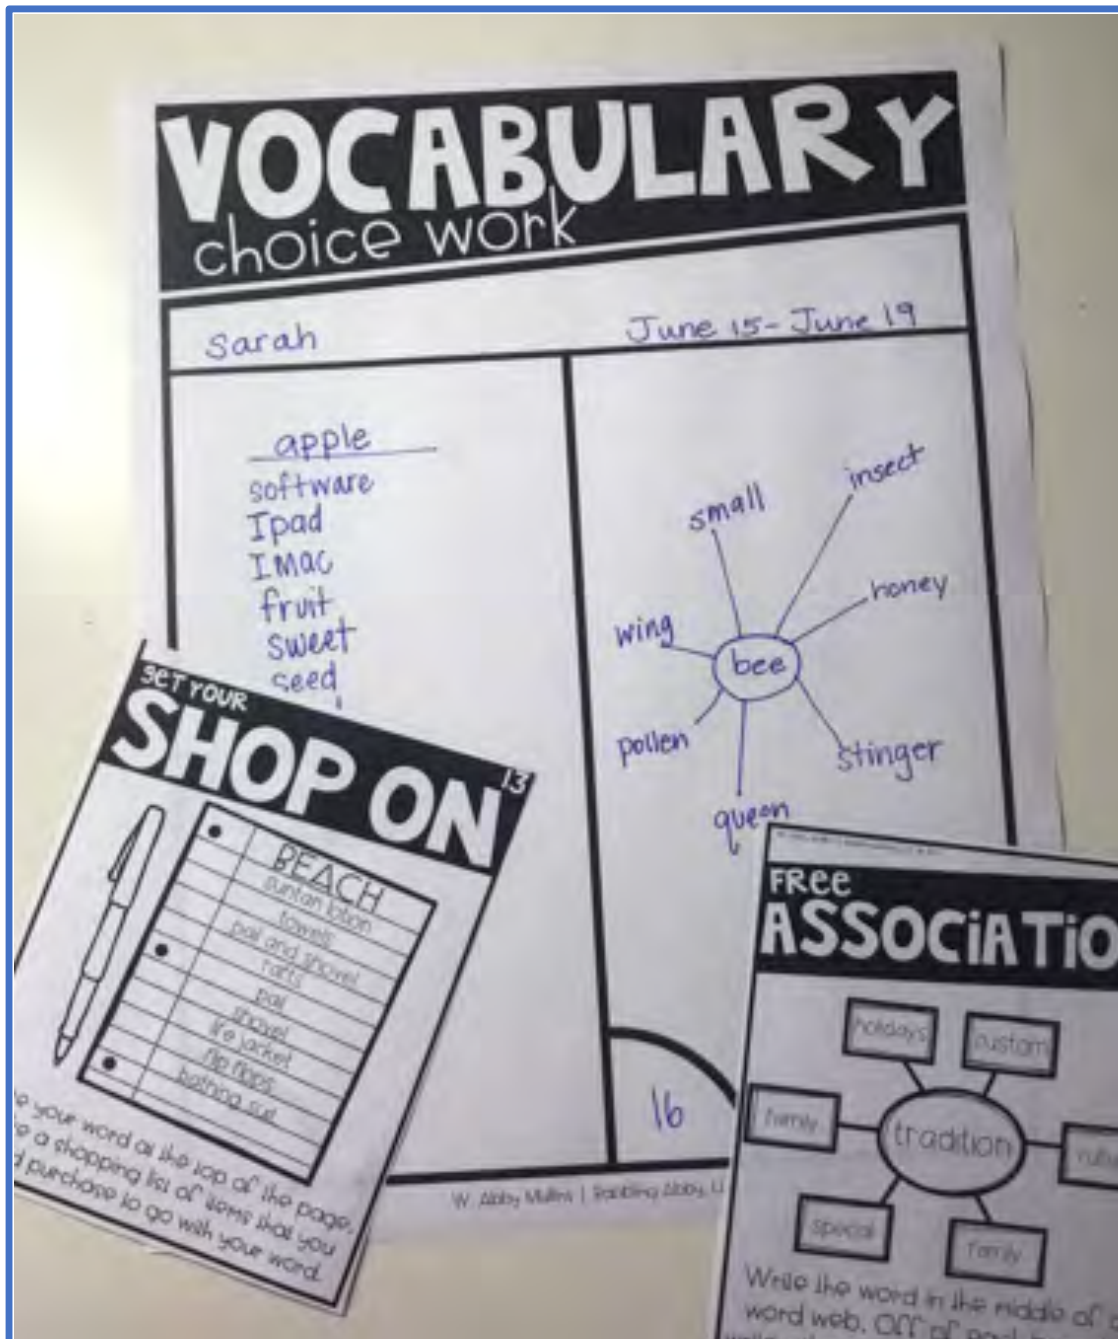 VOCABULARY
choice work
Sarah
June 15 - June 19
apple
software
Ipad
IMac
fruit
sweet
seed
small
insect
honey
wing
bee
pollen
stinger
queen
16
W. Abby Mullins | Babbling Abby, LL
GET YOUR
SHOP ON
13
BEACH
suntan lotion
towels
pail and shovel
rafts
pail
shovel
life jacket
flip flops
bathing suit
your word as the top of the page,
a shopping list of items that you
purchase to go with your word.
FREE
ASSOCIATIO
holidays
custom
family
tradition
special
family
Write the word in the middle of
word web. Off of